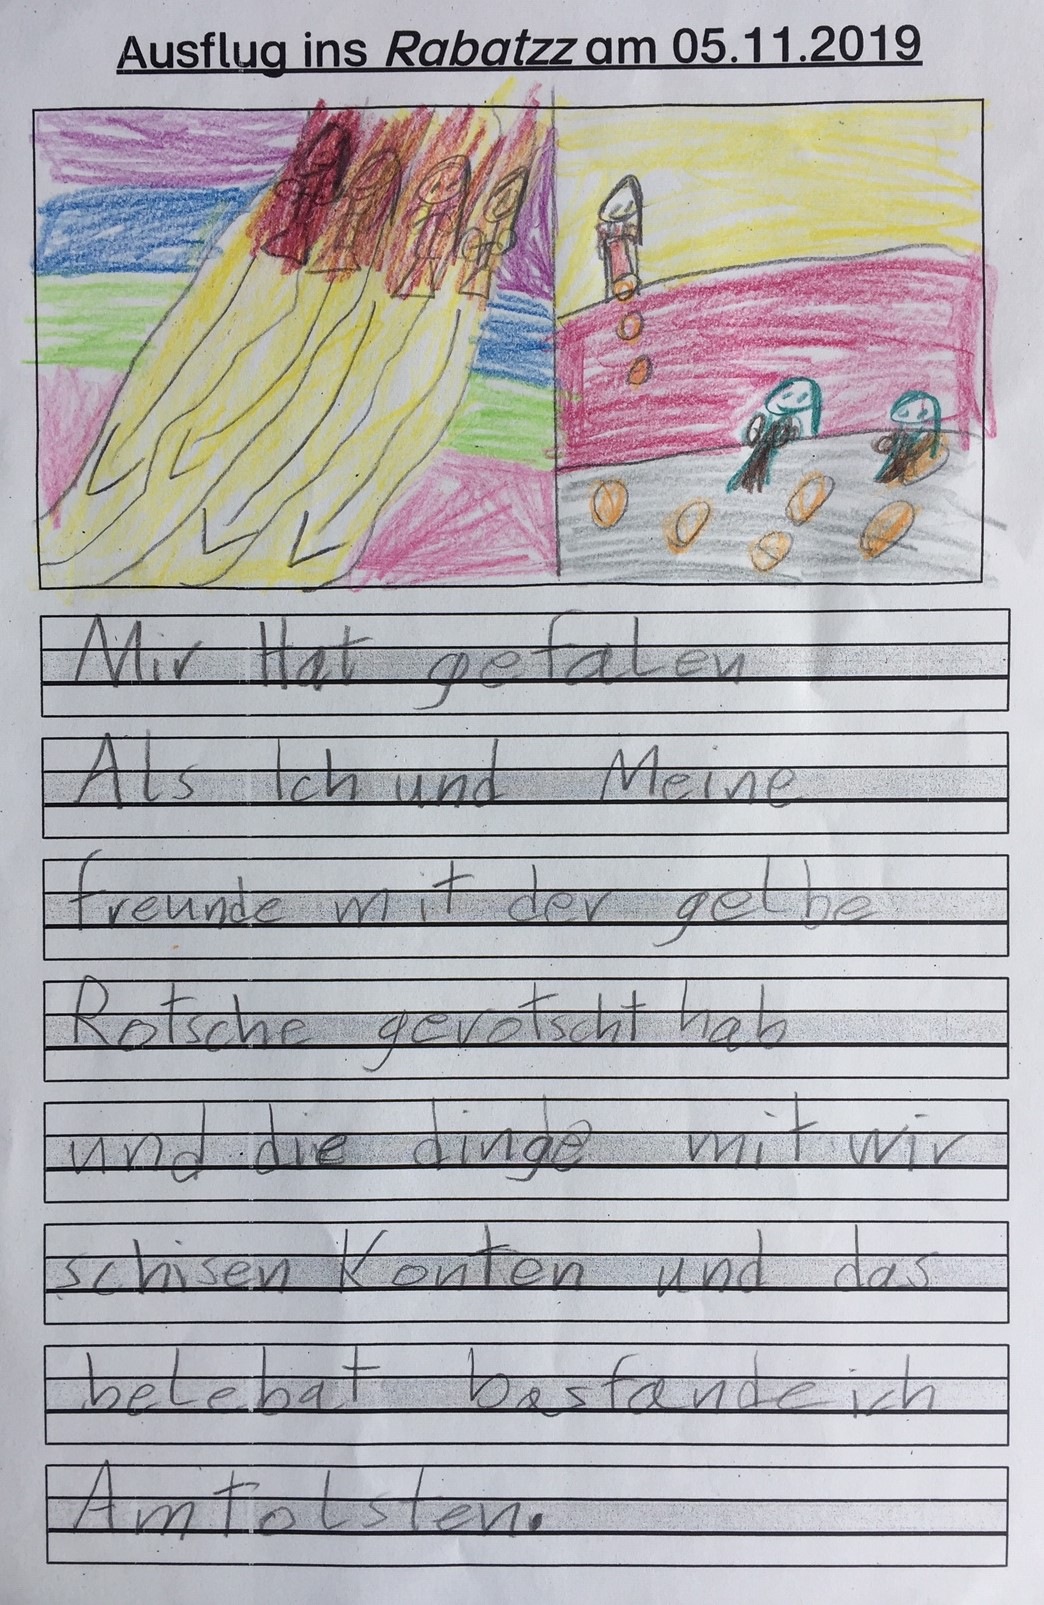 Ausflug ins Rabatzz am 05.11.2019
Mir Hat gefalen
Als Ich und Meine
freunde mit der gelbe
Rotsche gerotscht hab
und die dinge mit wir
schisen Konten und das
belebat bastande ich
Amtolsten.